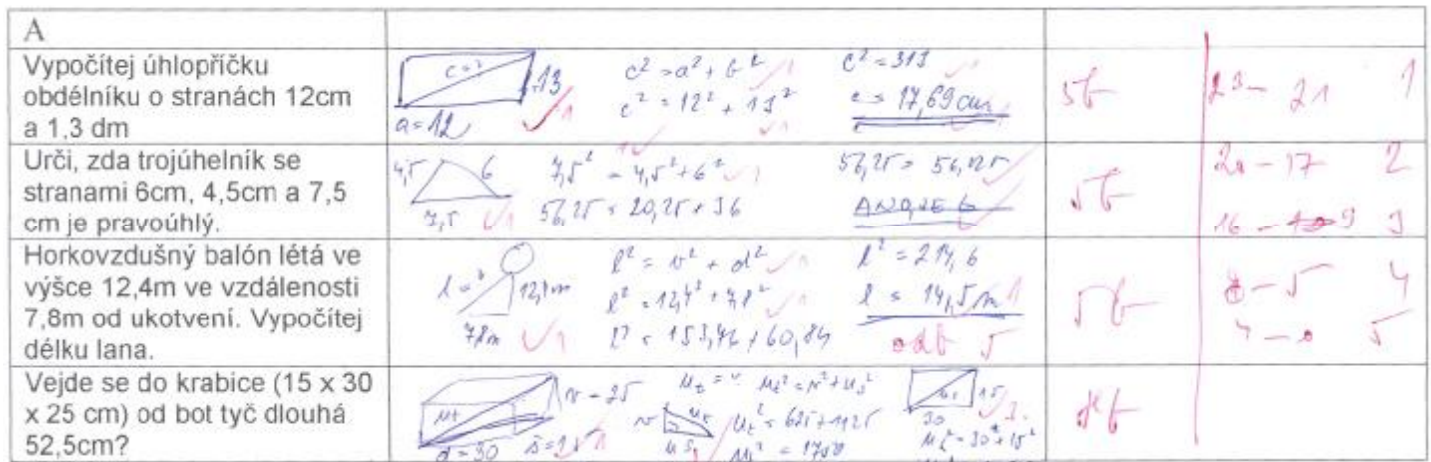 A
Vypočítej úhlopříčku
obdélníku o stranách 12cm
a 1,3 dm
c=? 13
a=12
c² = a² + b²
c² = 12² + 13²
c² = 313
c = 17,69 cm
5b
23 - 21 1
Urči, zda trojúhelník se
stranami 6cm, 4,5cm a 7,5
cm je pravoúhlý.
4,5 6
7,5
7,5² = 4,5² + 6²
56,25 = 20,25 + 36
56,25 = 56,25
5b
20 - 17 2
16 - 9 3
Horkovzdušný balón létá ve
výšce 12,4m ve vzdálenosti
7,8m od ukotvení. Vypočítej
délku lana.
l = ? 12,4m
7,8m
l² = v² + d²
l² = 12,4² + 7,8²
l² = 153,76 + 60,84
l² = 214,6
l = 14,5m
odb 5
5b
8 - 5 4
4 - 0 5
Vejde se do krabice (15 x 30
x 25 cm) od bot tyč dlouhá
52,5cm?
ut
v = 25
d = 30
ut² = v² + us²
ut² = 625 + 1125
ut² = 1750
15
30